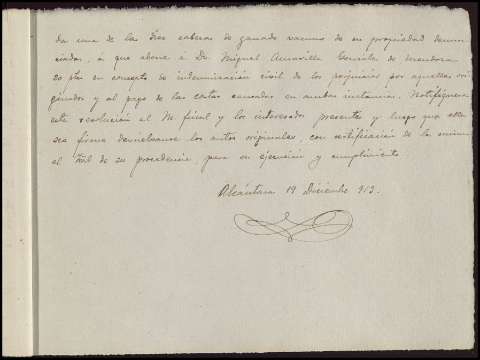 da una de las tres cabezas de ganado vacuno de su propiedad denun
ciadas, á que abone á Dn. Miguel Amarilla Conde de Mendoza
20 ptas en concepto de indemnizacion civil de los perjuicios por aquellas ori
ginados y al pago de las costas causadas en ambas instancias. Notifíquese
esta resolucion al M fiscal y los interesados presentes y luego que
sea firme devuelvanse los autos originales, con certificacion de la misma
al tral de su procedencia, para su ejecucion y cumplimiento
Alcántara 19 Diciembre 913.